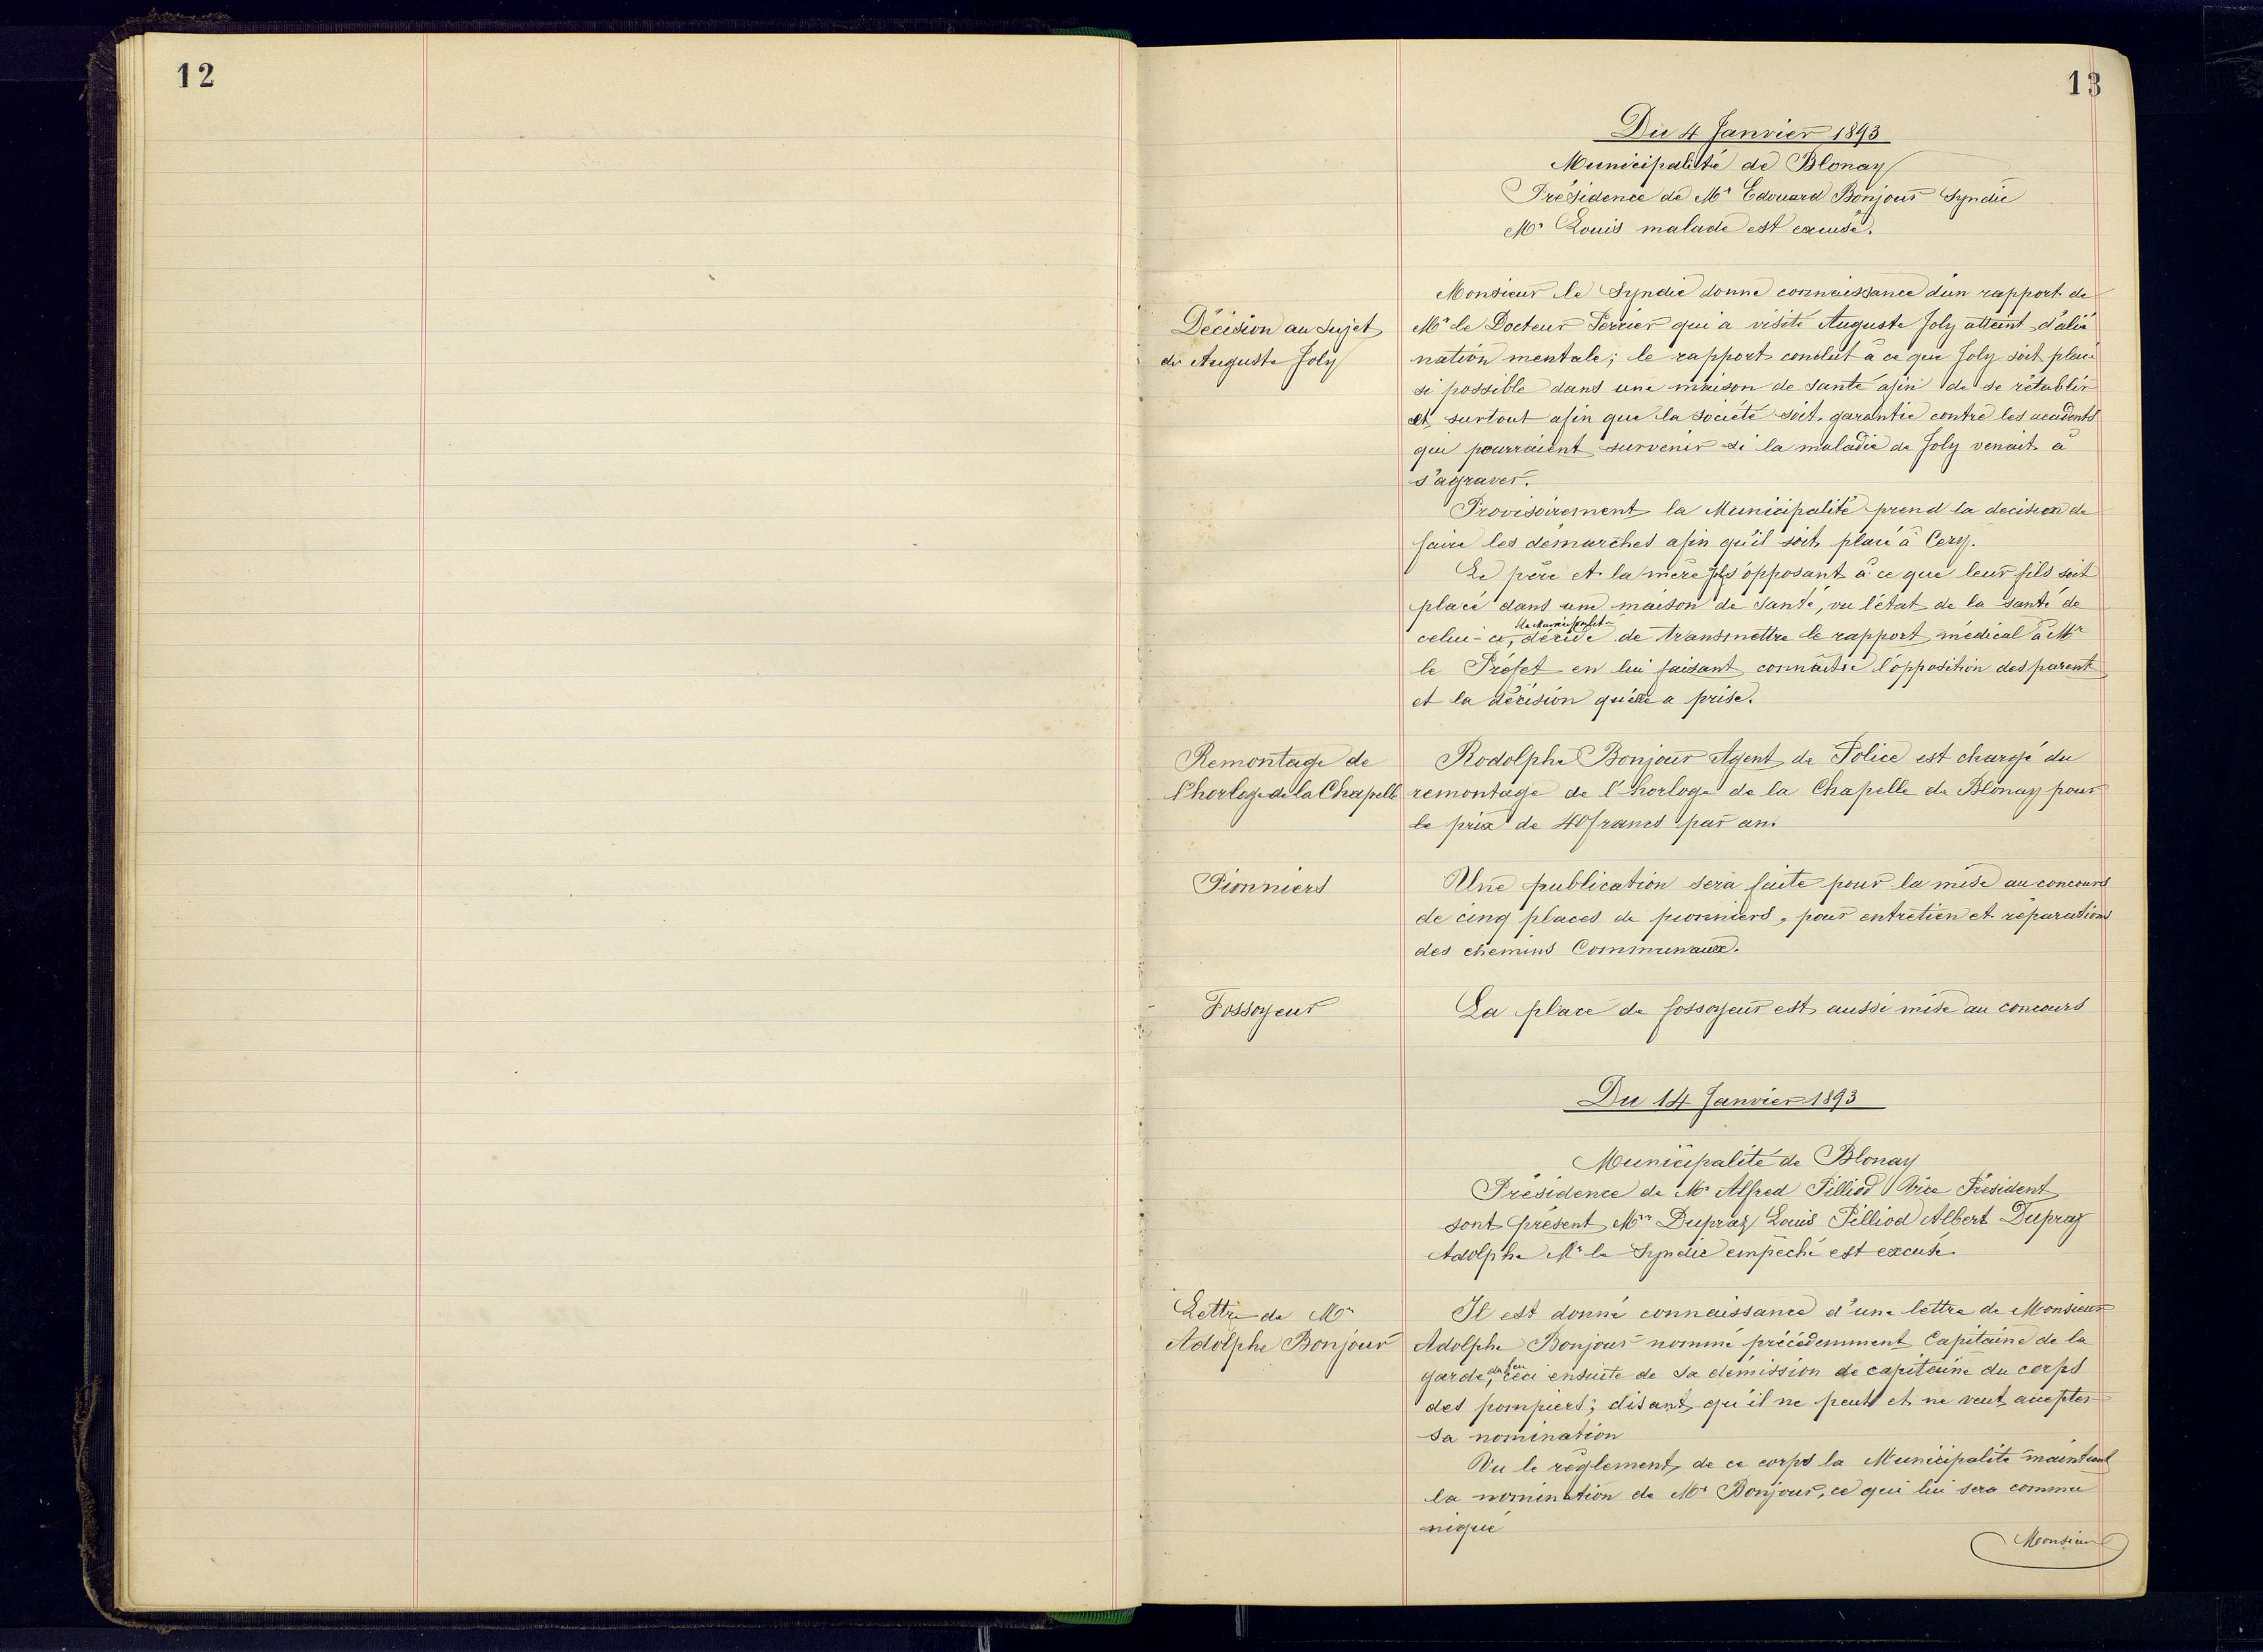 12
13
Du 4 Janvier 1893
Municipalité de Blonay
Présidence de Mr Edouard Bonjour Syndic
Mr Louis malade est excusé.
Monsieur le Syndic donne connaissance d'un rapport de
Décision au sujet
de Auguste Joly
Mr le Docteur Perrier qui a visité Auguste Joly atteint d'alié
nation mentale; le rapport conclut à ce que Joly soit placé
si possible dans une maison de santé afin de se rétablir
et surtout afin que la société soit garantie contre les accidents
qui pourraient survenir si la maladie de Joly venait à
s'agraver.
Provisoirement la Municipalité prend la decision de
faire les démarches afin qu'il soit placé à Cery.
Le père et la mère s'opposant à ce que leur fils soit
placé dans une maison de santé, vu l'état de la santé de
celui-ci, la Municipalité décide de transmettre le rapport médical à Mr
le Préfet en lui faisant connaître l'opposition des parents
et la décision qu'elle a prise.
Remontage de
l'horloge de la Chapelle
Rodolphe Bonjour Agent de Police est chargé du
remontage de l'horloge de la Chapelle de Blonay pour
le prix de 40 francs par an.
Pionniers
Une publication sera faite pour la mise au concours
de cinq places de pionniers, pour entretien et réparations
des chemins Communaux.
Fossoyeur
La place de fossoyeur est aussi mise au concours
Du 14 Janvier 1893
Municipalité de Blonay
Présidence de Mr Alfred Pilliod Vice Président
sont présent Mrs Dupraz Louis Pilliod Albert Dupraz
Adolphe Mr le Syndic empêché est excusé.
Lettre de Mr
Adolphe Bonjour
Il est donné connaissance d'une lettre de Monsieur
Adolphe Bonjour nommé précédemment Capitaine de la
garde du feu, ceci ensuite de sa démission de capitaine du corps
des pompiers; disant qu'il ne peut et ne veut accepter
sa nomination
Vu le règlement de ce corps la Municipalité maintient
la nomination de Mr Bonjour, ce qui lui sera commu
niqué
Monsieur